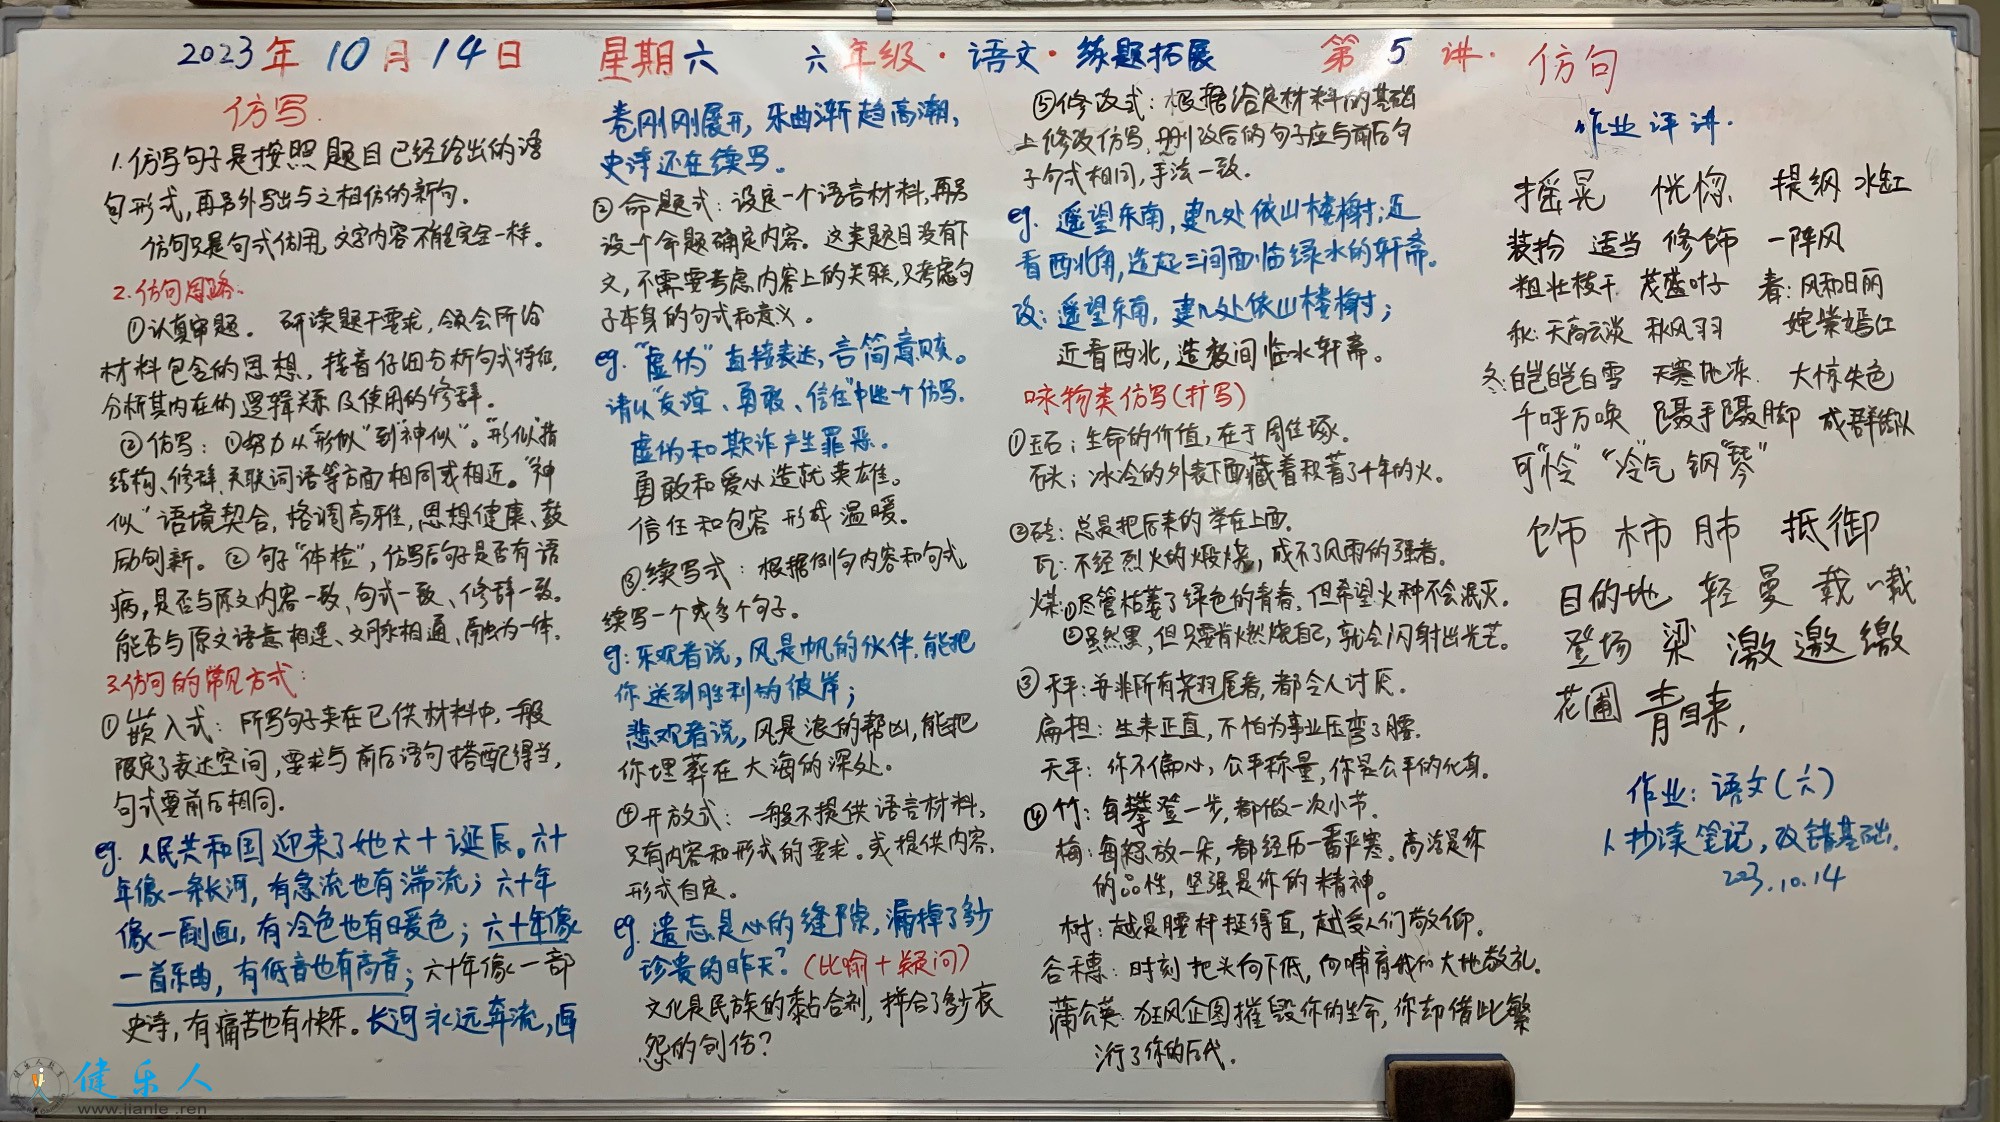 2023年10月14日 星期六 六年级·语文·练题拓展 第5讲·仿句
仿写
1.仿写句子是按照题目已经给出的语
句形式,再另外写出与之相仿的新句。
仿句只是句式仿用,文字内容不能完全一样。
2.仿句思路:
①认真审题。 研读题干要求,领会所给
材料包含的思想,接着仔细分析句式特征,
分析其内在的逻辑关系及使用的修辞。
②仿写:①努力从“形似”到“神似”。“形似”指
结构、修辞、关联词语等方面相同或相近。“神
似”语境契合,格调高雅,思想健康、鼓
励创新。②句子“体检”,仿写后句子是否有语
病,是否与原文内容一致、句式一致、修辞一致。
能否与原文语意相连、文脉相通、融为一体.
3.仿句的常见方式:
①嵌入式:所写句子夹在已供材料中,一般
限定了表达空间,要求与前后语句搭配得当,
句式要前后相同.
eg.人民共和国迎来了她六十诞辰。六十
年像一条长河,有急流也有湍流;六十年
像一副画,有冷色也有暖色;六十年像
一首乐曲,有低音也有高音;六十年像一部
史诗,有痛苦也有快乐。长河永远奔流,画
卷刚刚展开,乐曲渐趋高潮,
史诗还在续写。
②命题式:设定一个语言材料,再另
设一个命题确定内容。这类题目没有下
文,不需要考虑内容上的关联,只考虑句
子本身的句式和意义。
eg.“虚伪”直接表达,言简意赅。
请以“友谊、勇敢、信任”中选一个仿写.
虚伪和欺诈产生罪恶.
勇敢和爱心造就英雄。
信任和包容形成温暖。
③续写式:根据例句内容和句式
续写一个或多个句子。
eg:乐观者说,风是帆的伙伴,能把
你送到胜利的彼岸;
悲观者说,风是浪的帮凶,能把
你埋葬在大海的深处。
④开放式:一般不提供语言材料,
只有内容和形式的要求。或提供内容,
形式自定。
eg.遗忘是心的缝隙,漏掉了多少
珍贵的昨天?(比喻+疑问)
文化是民族的黏合剂,拼合了多少哀
怨的创伤?
⑤修改式:根据给定材料的基础
上修改仿写,删改后的句子应与前后句
子句式相同,手法一致.
eg.遥望东南,建几处依山楼榭;近
看西北角,造起三间面临绿水的轩斋。
改:遥望东南,建几处依山楼榭;
近看西北,造数间临水轩斋。
咏物类仿写(扩写)
①玉石:生命的价值,在于周住琢。
石头:冰冷的外表下面藏着积蓄了千年的火。
②砖:总是把后来的举在上面.
瓦:不经烈火的煅烧,成不了风雨的强者.
煤:①尽管枯萎了绿色的青春,但希望火种不会泯灭。
②虽然黑,但只要肯燃烧自己,就会闪射出光芒。
③秤:并非所有尧羽尾者,都令人讨厌.
扁担:生来正直,不怕为事业压弯了腰.
天平:你不偏心,公平称量,你是公平的化身。
④竹:每攀登一步,都做一次小节.
梅:每怒放一朵,都经历一番严寒。高洁是你
的品性,坚强是你的精神。
树:越是腰杆挺得直,越受人们敬仰.
谷穗:时刻把头向下低,向哺育我的大地敬礼.
蒲公英:狂风企图摧毁你的生命,你却借此繁
衍了你的后代.
作业评讲.
摇晃 恍惚 提纲 水缸
装扮 适当 修饰 一阵风
粗壮枝干 茂盛叶子 春:风和日丽
秋:天高云淡 秋风习习 姹紫嫣红
冬:皑皑白雪 天寒地冻 大惊失色
千呼万唤 蹑手蹑脚 成群结队
可“怜” “冷”气 钢“琴”
饰 柿 肺 抵御
目的地 轻 曼 载 一载
登场 梁 激 邀 缴
花圃 青睐,
作业:语文(六)
1.抄读笔记,改错基础.
2023.10.14
健乐人
www.jianle.ren